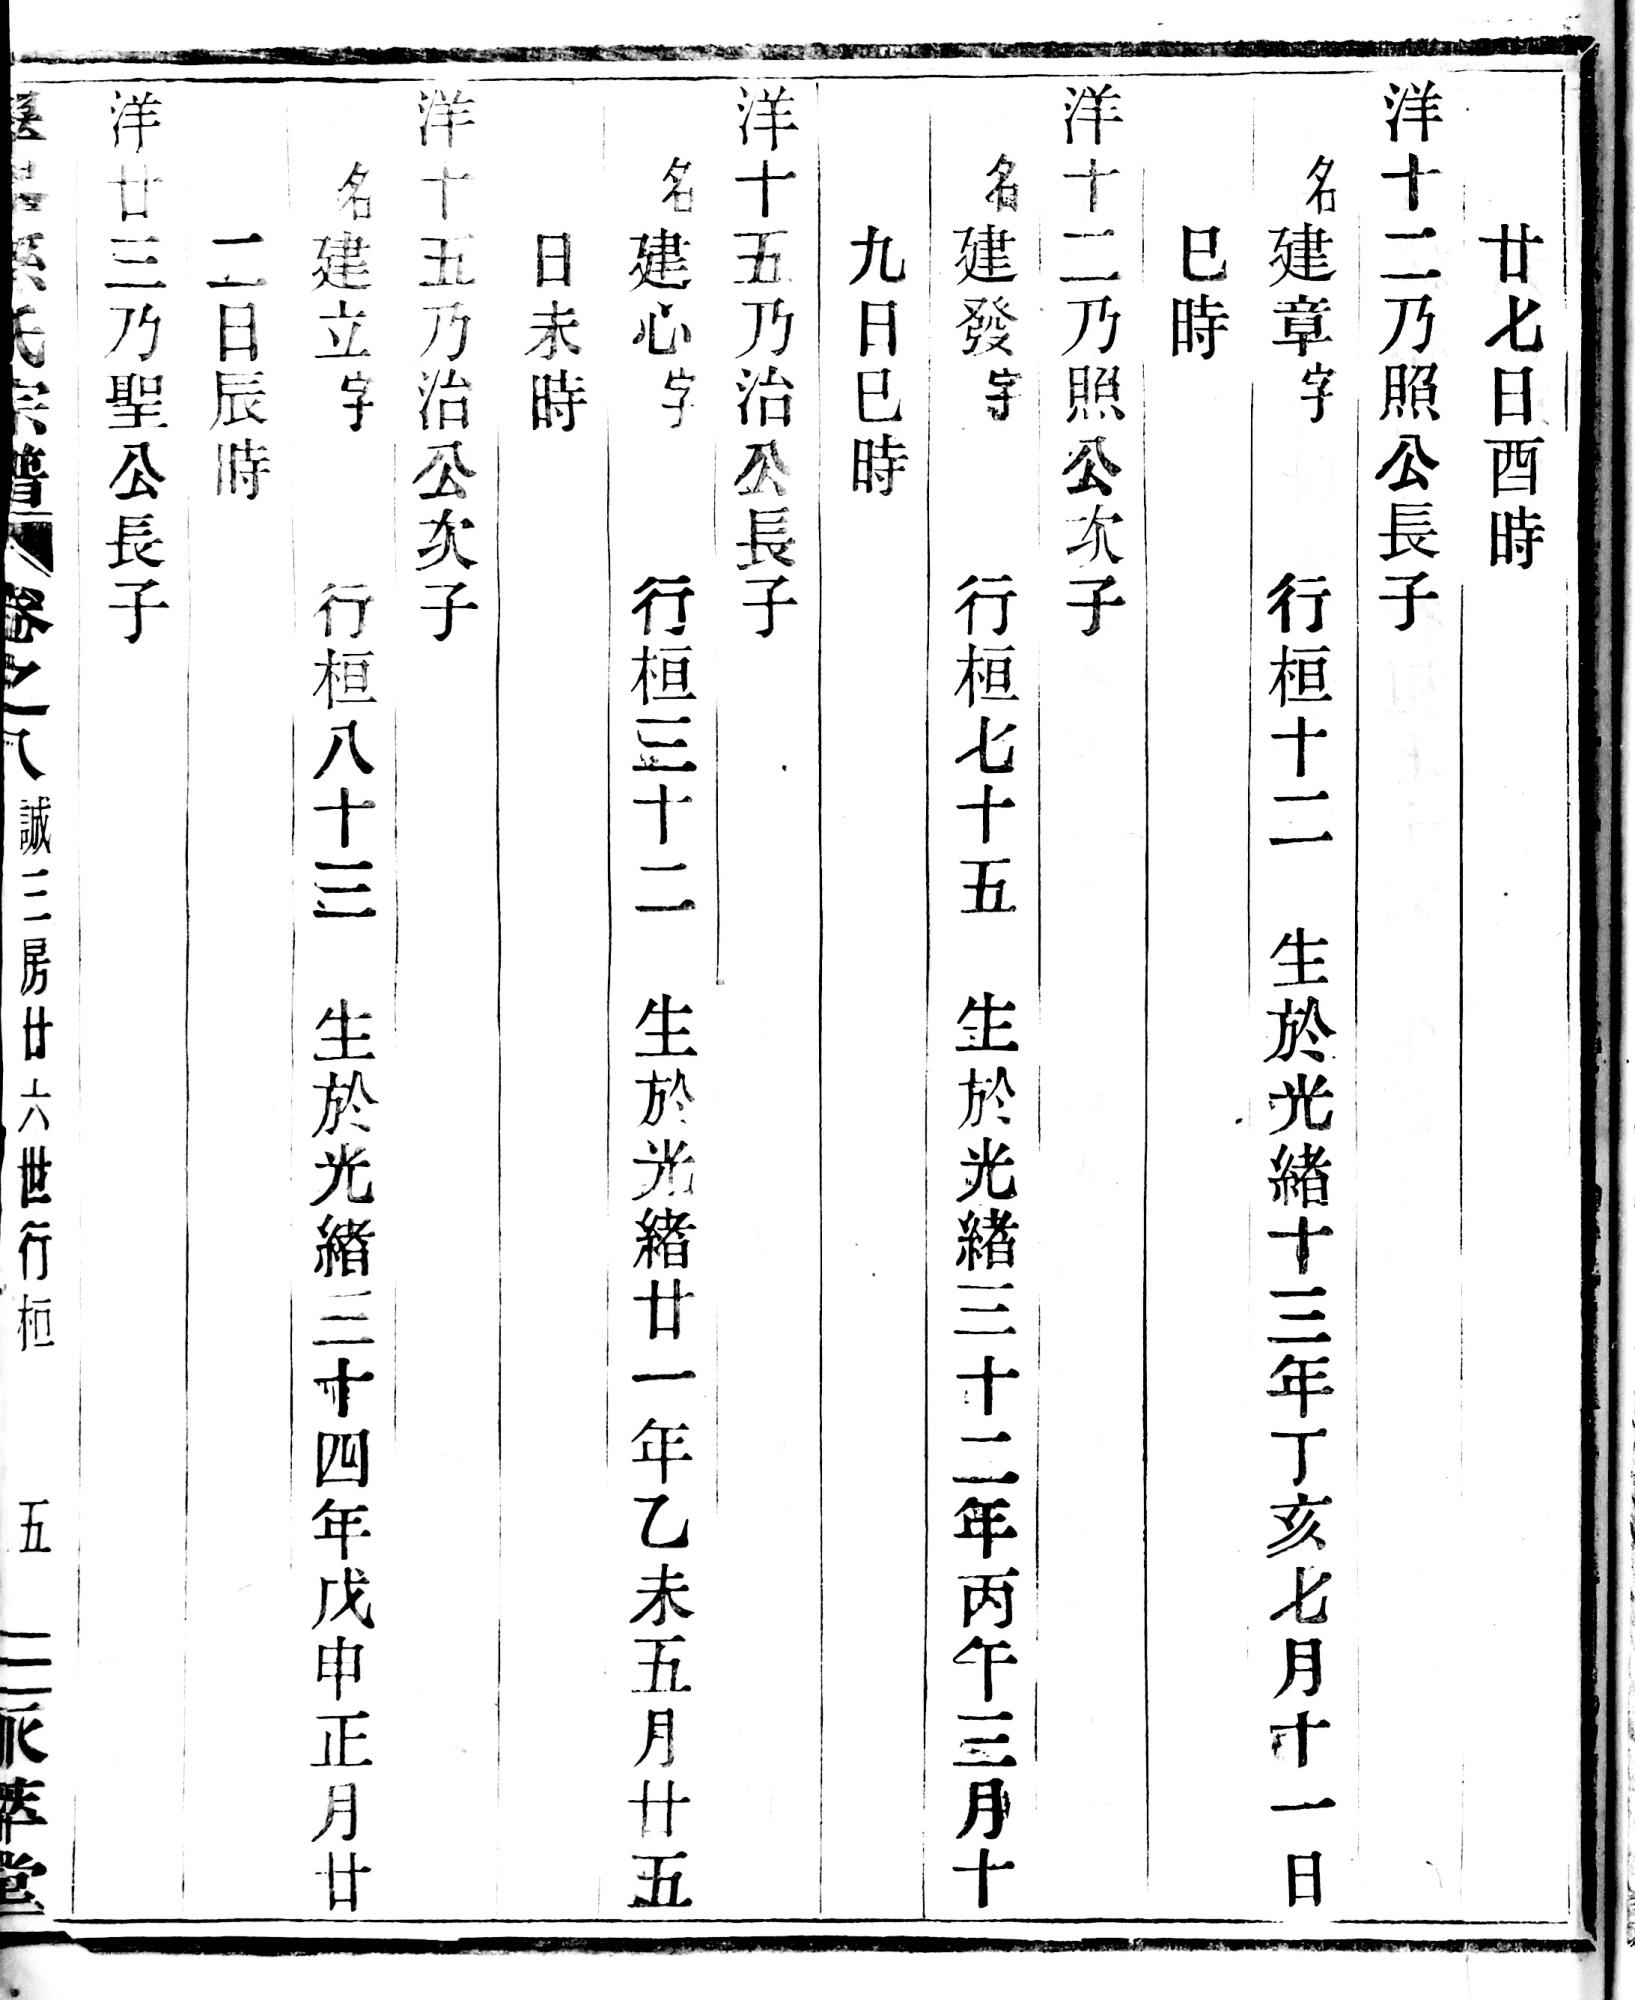 廿七日酉時
洋十二乃照公長子
名建章字 行桓十二 生於光緒十三年丁亥七月十一日
巳時
洋十二乃照公次子
名建發字 行桓七十五 生於光緒三十二年丙午三月十
九日巳時
洋十五乃治公長子
名建心字 行桓三十二 生於光緒廿一年乙未五月廿五
日未時
洋十五乃治公次子
名建立字 行桓八十三 生於光緒三十四年戊申正月廿
二日辰時
洋廿三乃聖公長子
孫氏宗譜 卷之八 誠三房廿六世行桓 五 堂